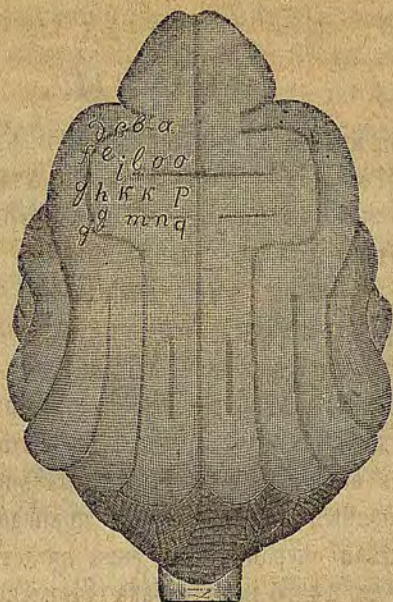 d c b a
f e i l o o
g h k k p
g g m n q